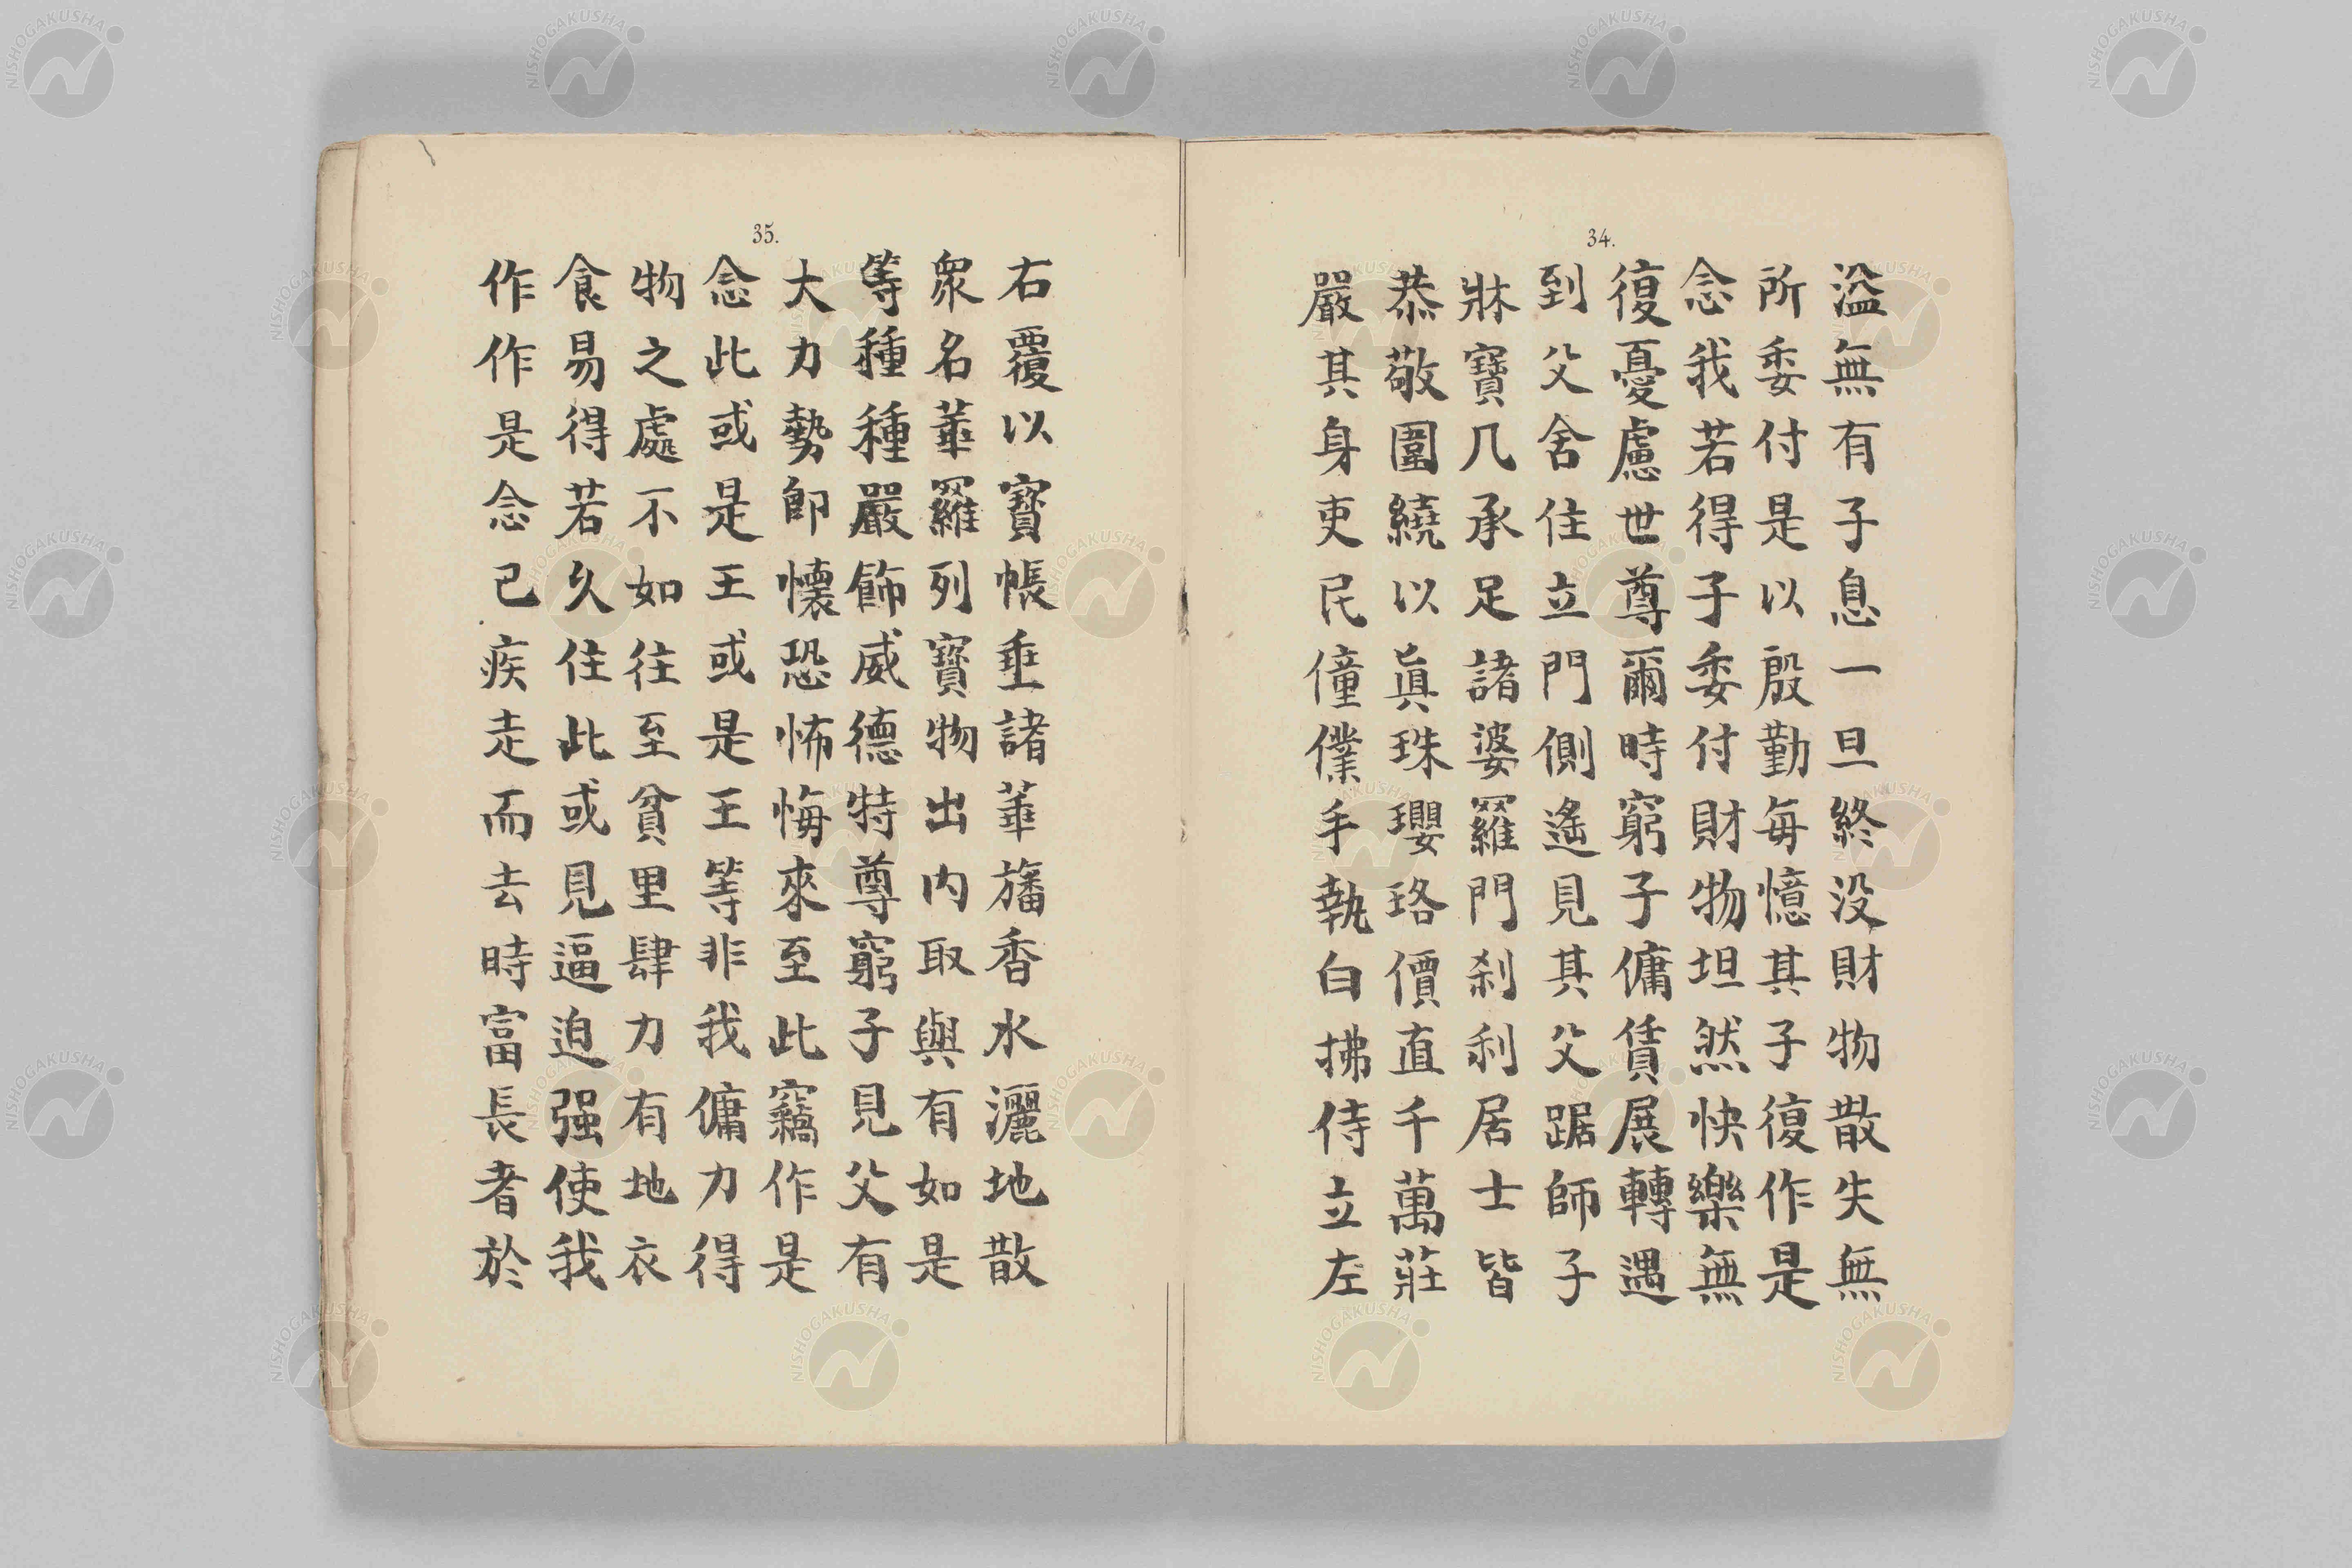 34.
溢無有子息一旦終没財物散失無
所委付是以殷勤每憶其子復作是
念我若得子委付財物坦然快樂無
復憂慮世尊爾時窮子傭賃展轉遇
到父舍住立門側遙見其父踞師子
牀寶几承足諸婆羅門刹利居士皆
恭敬圍繞以眞珠瓔珞價直千萬莊
嚴其身吏民僮僕手執白拂侍立左
35.
右覆以寶帳垂諸華旛香水灑地散
衆名華羅列寶物出内取與有如是
等種種嚴飾威德特尊窮子見父有
大力勢卽懷恐怖悔來至此竊作是
念此或是王或是王等非我傭力得
物之處不如往至貧里肆力有地衣
食易得若久住此或見逼迫强使我
作作是念已疾走而去時富長者於
NISHOGAKUSHA